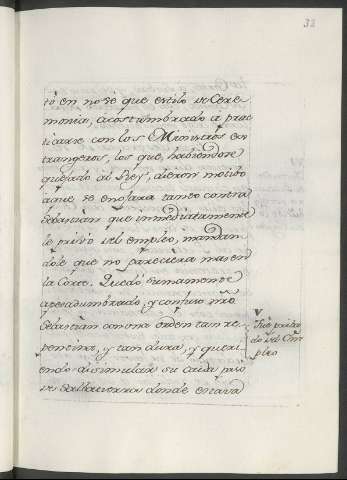 32
tó en no sé que estilo de Cere
monia, acostumbrado a prac
ticarse con los Ministros es
trangeros, los que, habiendose
quejado al Rey, dieron motibo
a que se enojara tanto contra
Sebastian que immediatamente
le privó del empleo, mandan
dole que no pareciera mas en
la Corte. Quedó sumamente
apesadumbrado, y confuso
Sebastian con una orden tan re
pentina, y tan dura, y queri
endo disimular su caida
de Salbatierra donde estava
V
Fué priba
do del Em
pleo